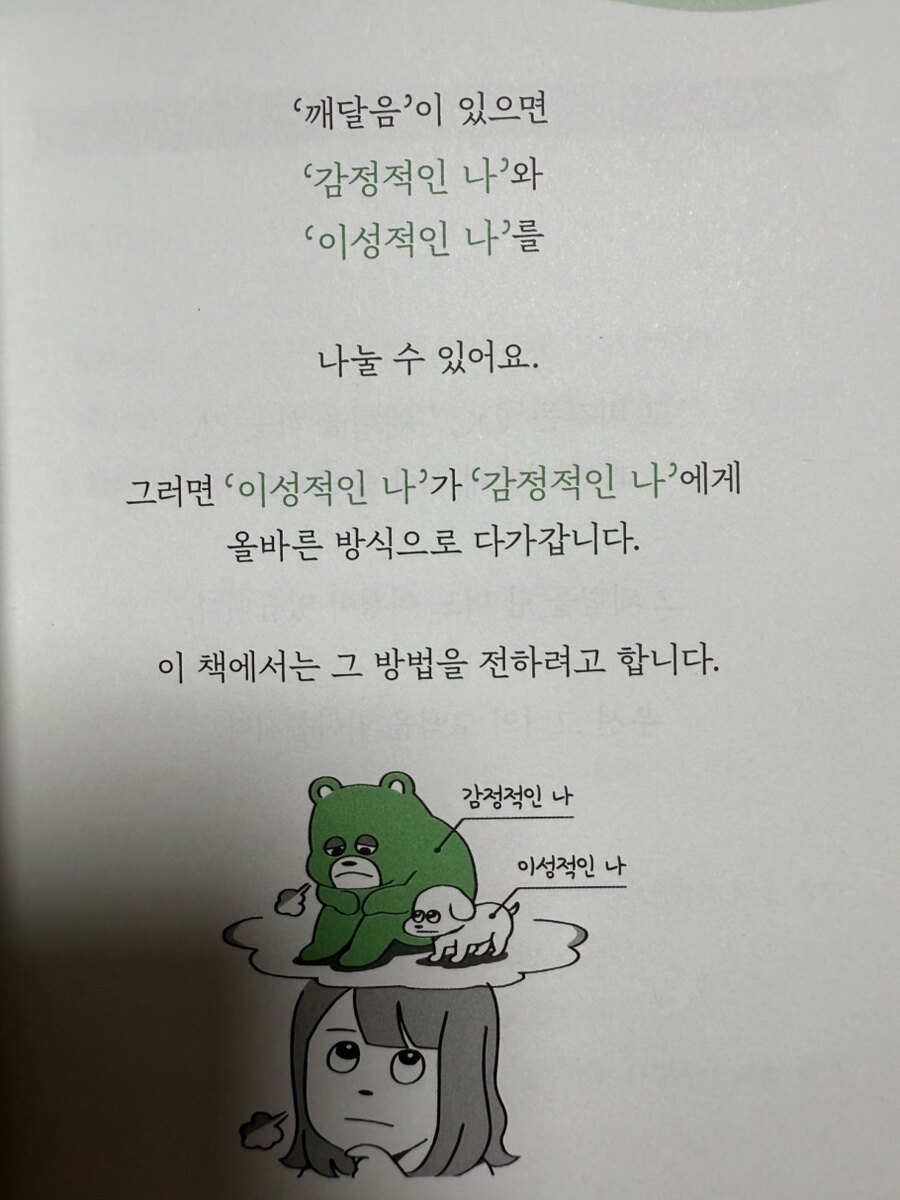 ‘깨달음’이 있으면
‘감정적인 나’와
‘이성적인 나’를
나눌 수 있어요.
그러면 ‘이성적인 나’가 ‘감정적인 나’에게
올바른 방식으로 다가갑니다.
이 책에서는 그 방법을 전하려고 합니다.
감정적인 나
이성적인 나